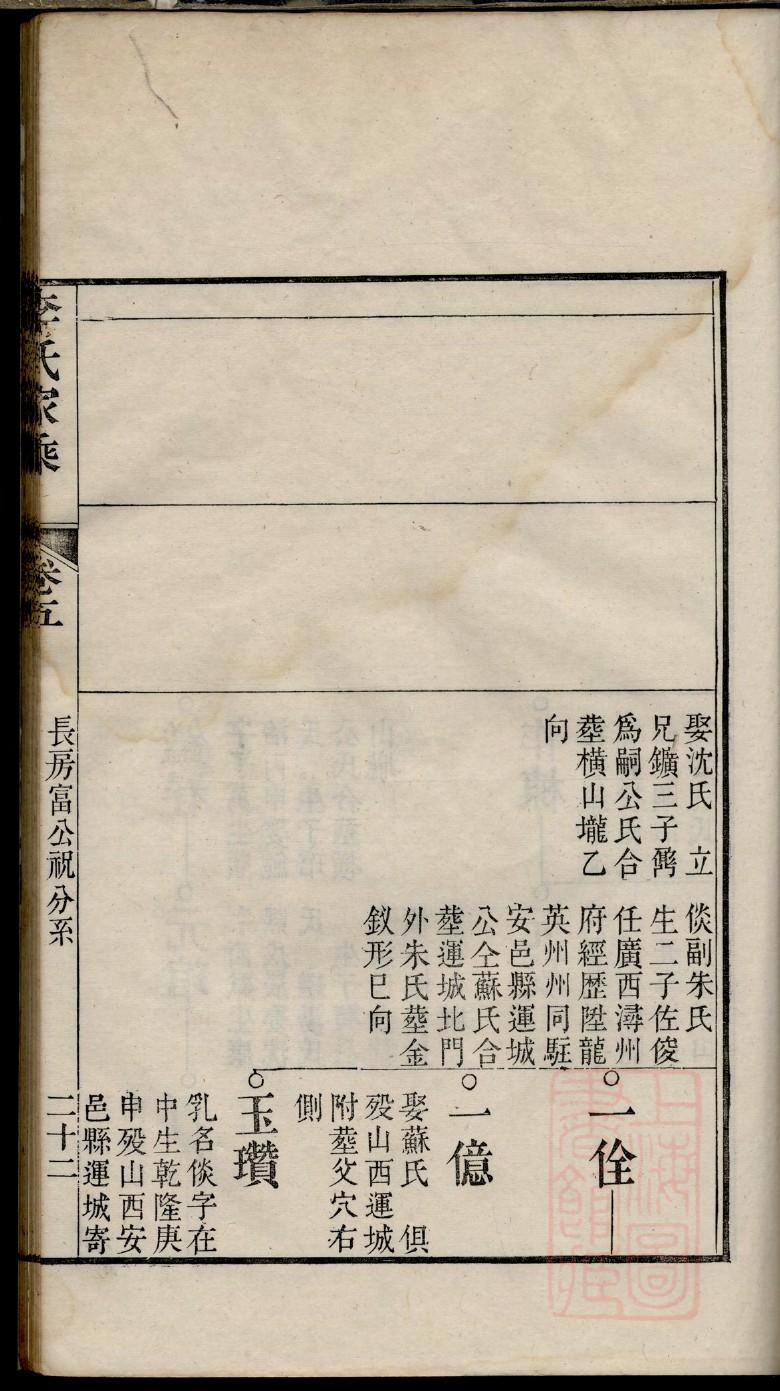 娶沈氏 立
兄鑛三子
爲嗣公氏合
塟橫山壠乙
向
倓副朱氏
生二子佐俊
任廣西潯州
府經歷陞龍
英州州同駐
安邑縣運城
公仝蘇氏合
塟運城北門
外朱氏塟金
釵形巳向
一佺
一億
娶蘇氏 俱
殁山西運城
附塟父穴右
側
玉瓚
乳名倓字在
中生乾隆庚
申殁山西安
邑縣運城寄
李氏家乘
卷五
長房富公祝分系
二十二
上海圖書館藏